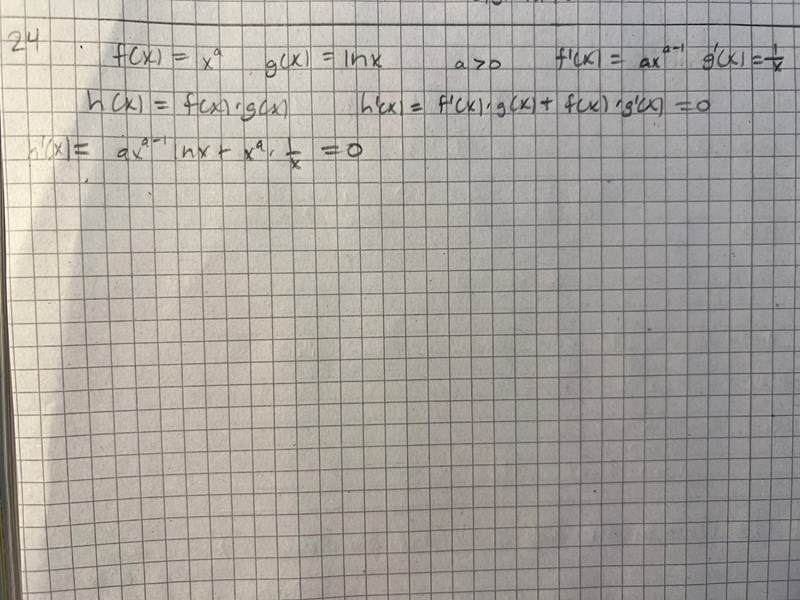 24 f(x) = xᵃ g(x) = lnx a>0 f'(x) = axᵃ⁻¹ g'(x) = 1/x
h(x) = f(x)·g(x) h'(x) = f'(x)·g(x) + f(x)·g'(x) = 0
h'(x) = axᵃ⁻¹ lnx + xᵃ · 1/x = 0